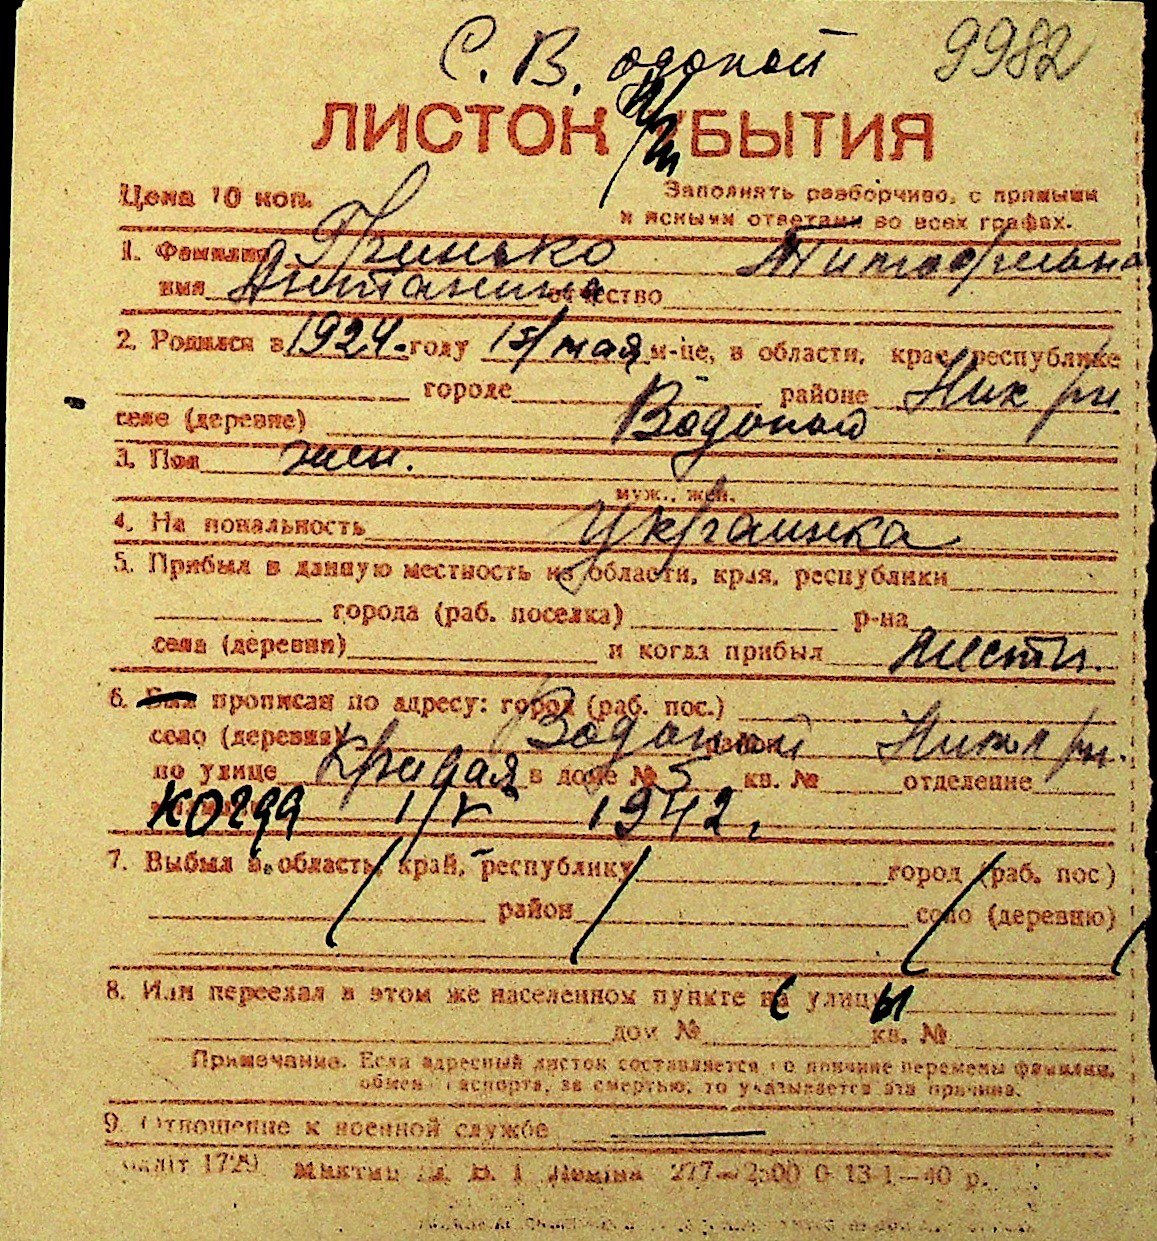 С. В. одопой 9982
ЛИСТОК УБЫТИЯ
Цена 10 коп.
Заполнять разборчиво, с прямыми
и ясными ответами во всех графах.
1. Фамилия Гринько Тимофеевна
имя Антанина отчество
2. Родился в 1924. году 15/ мая м-це, в области, крае, республике
городе районе Ник р/н
селе (деревне) Водопой
3. Пол жен.
муж., жен.
4. На иональность украинка
5. Прибыл в данную местность из области, края, республики
города (раб. поселка) р-на
села (деревни) и когда прибыл местн.
6. Был прописан по адресу: город (раб. пос.)
село (деревня) Водопой район Никол р/н.
по улице Кривая в доме № 5 кв. № отделение
когда 1/V 1942.
7. Выбыл в область, край, республику город (раб. пос)
район село (деревню)
8. Или переехал в этом же населенном пункте на улицу
дом № кв. №
Примечание. Если адресный листок составляется по причине перемены фамилии,
обмен паспорта, за смертью, то указывается эта причина.
9. Отношение к военной службе
1729 277—2500 0 13-1—40 р.